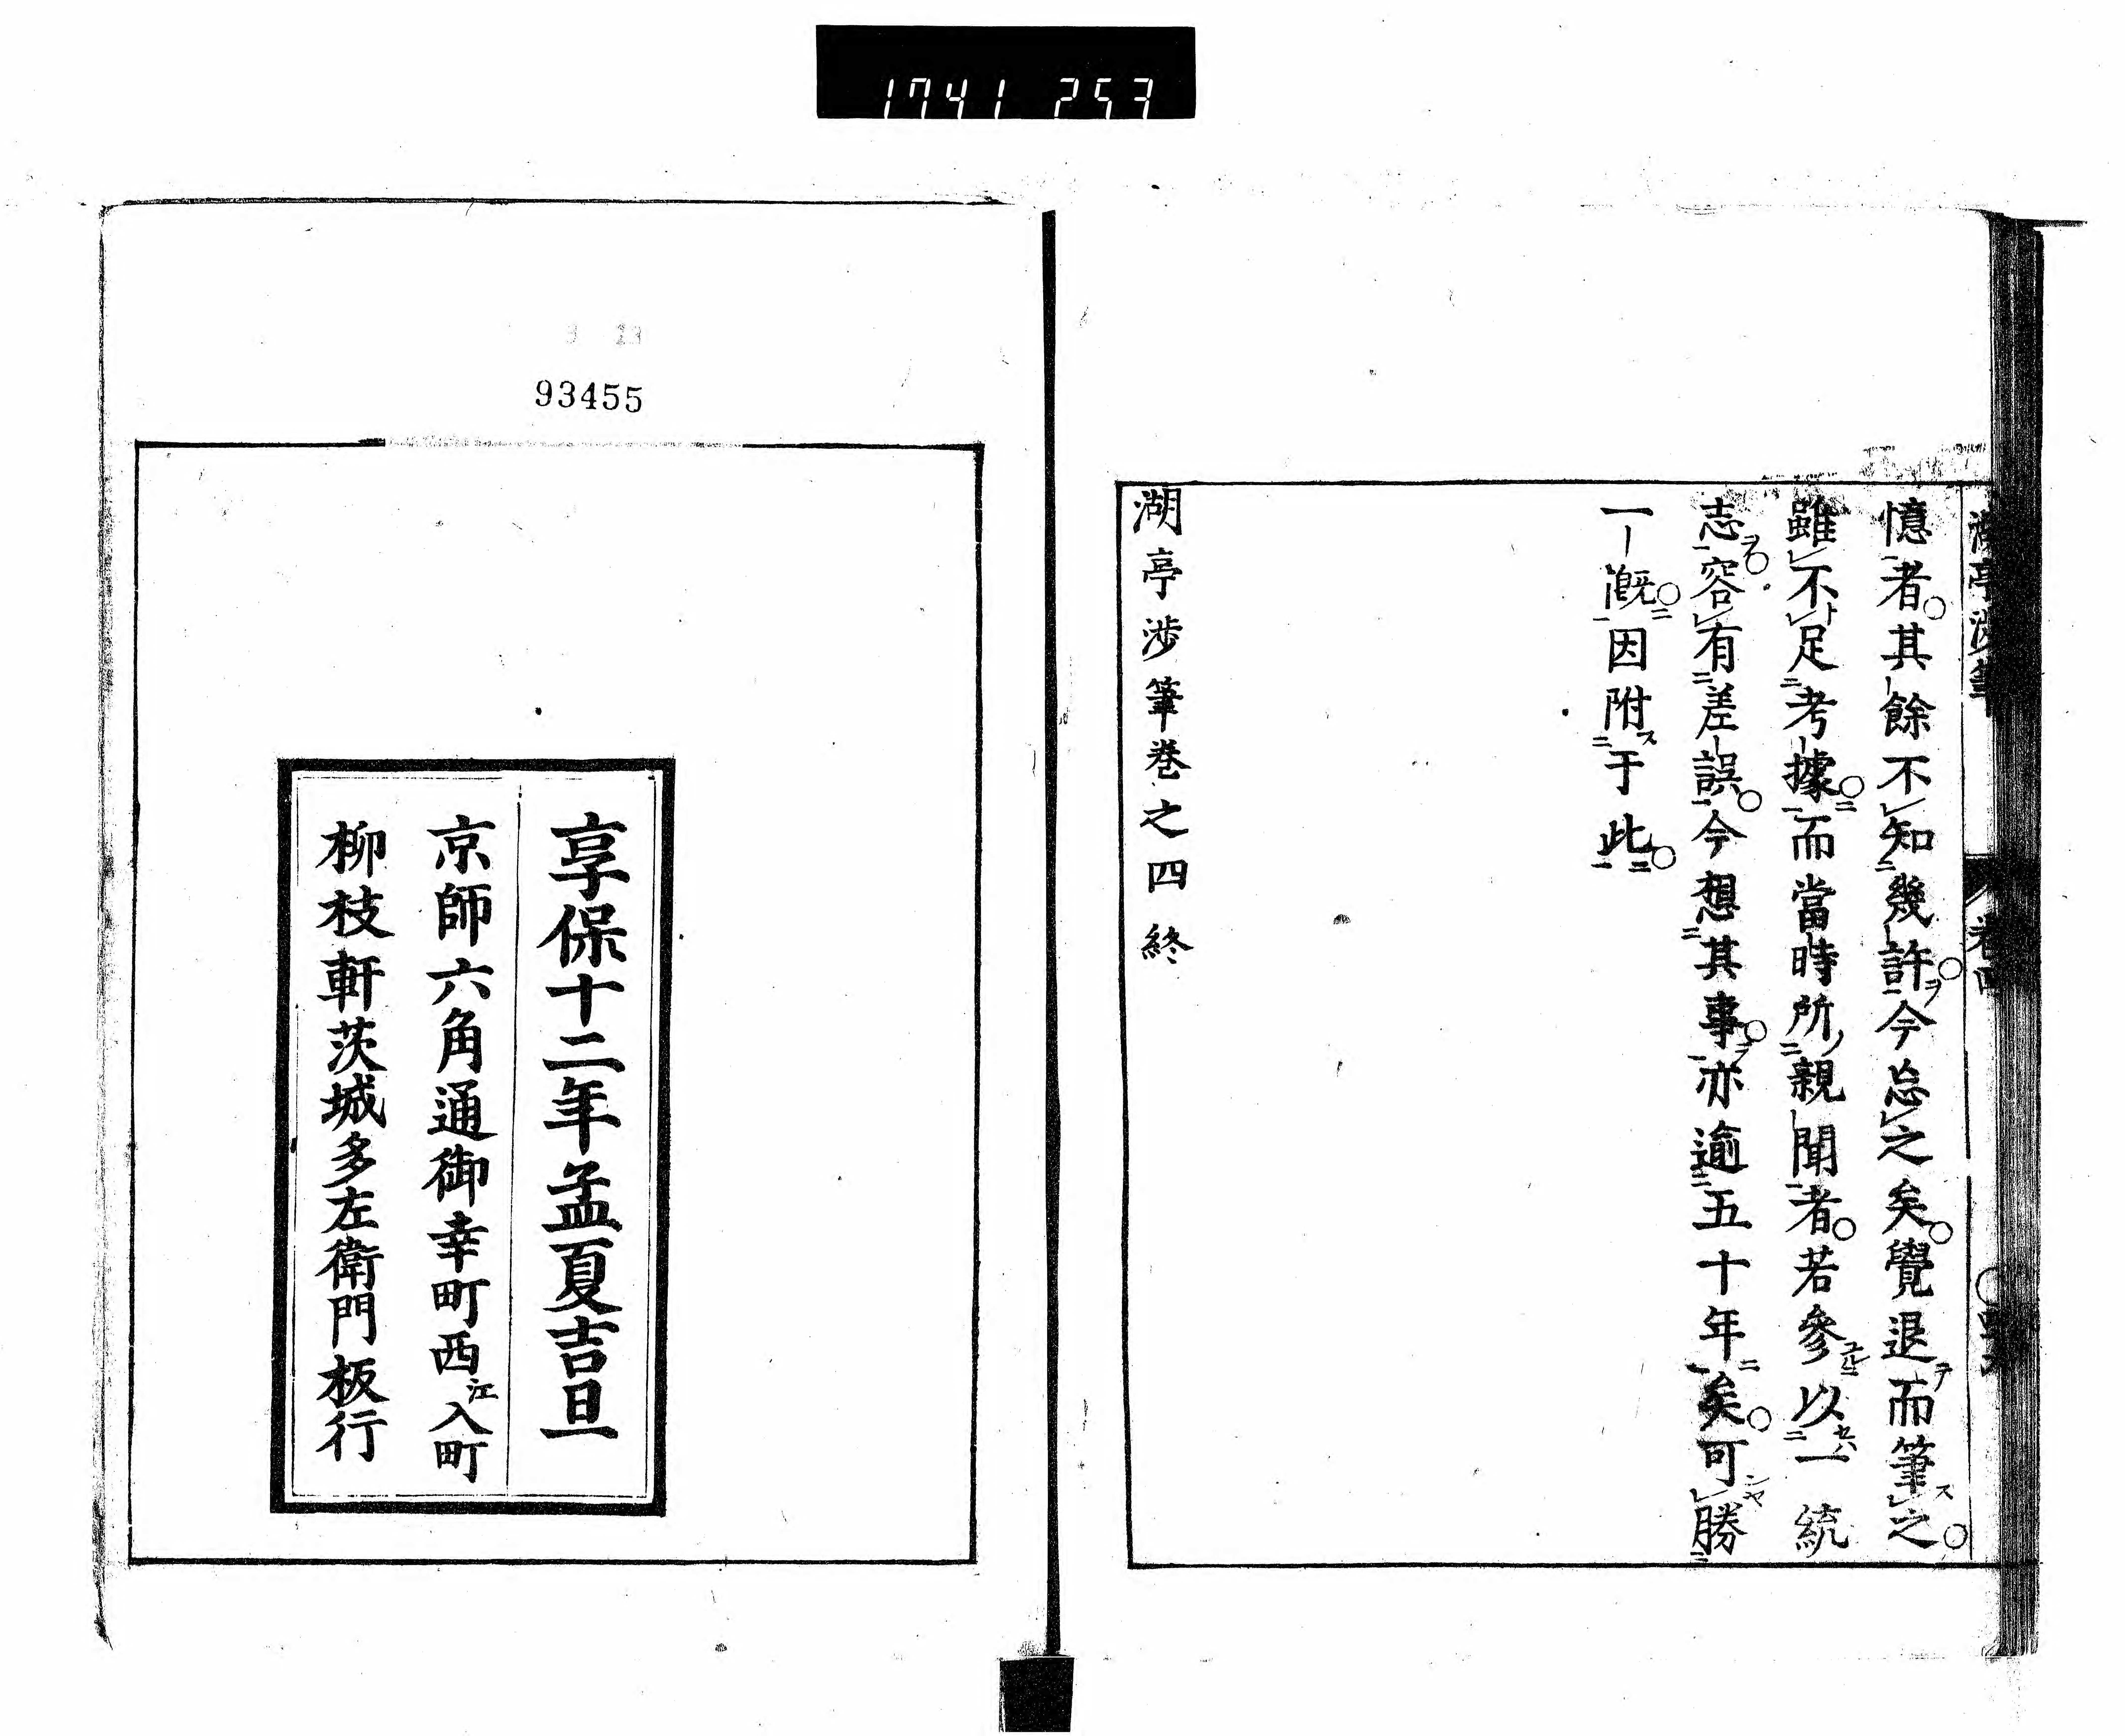 1741 253
憶者其餘不知幾許今忘之矣覺退而筆之
雖不足考據而當時所親聞者若參以一統
志容有差誤今想其事亦逾五十年矣可勝
一慨因附于此
湖亭涉筆卷之四終
93455
享保十二年孟夏吉旦
京師六角通御幸町西江入町
柳枝軒茨城多左衛門板行